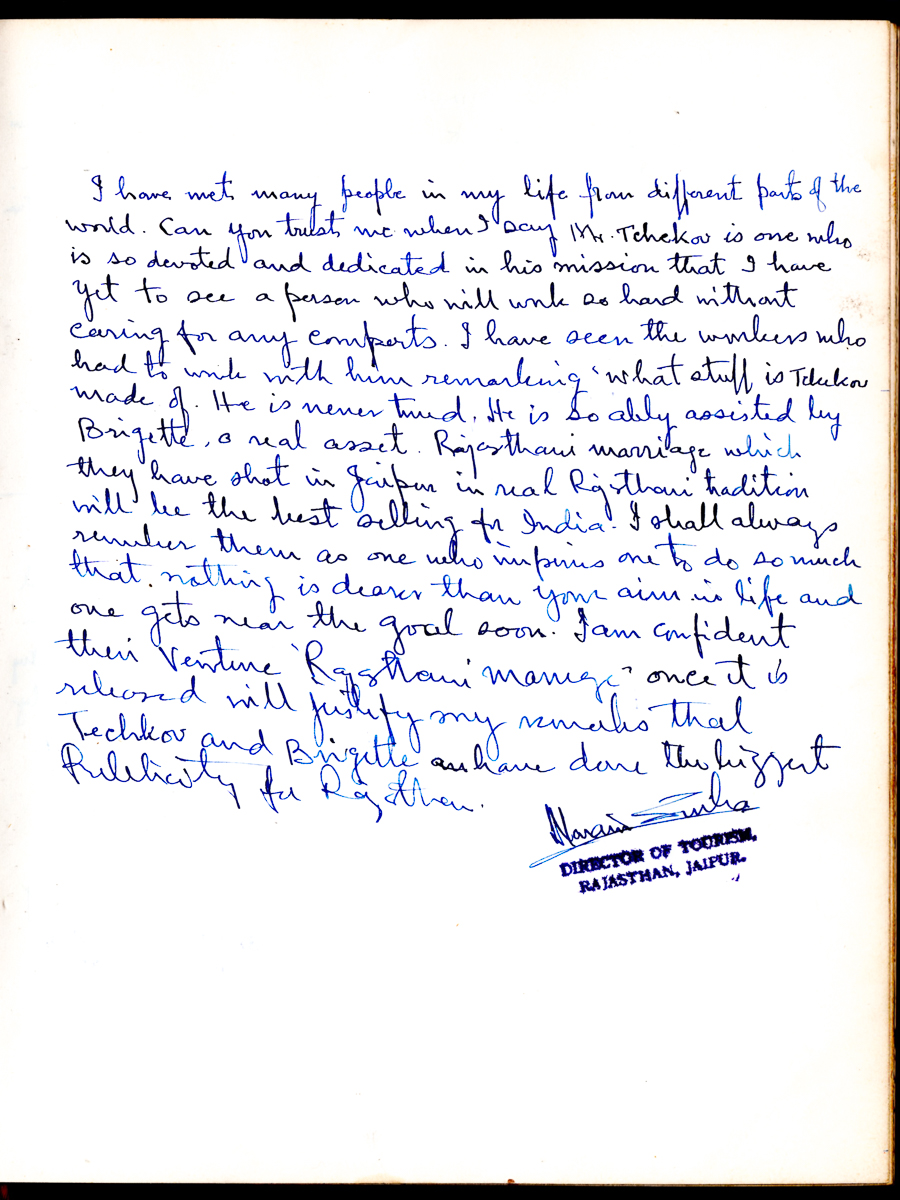 I have met many people in my life from different parts of the
world. Can you trust me when I say Mr. Tchekov is one who
is so devoted and dedicated in his mission that I have
yet to see a person who will work so hard without
caring for any comforts. I have seen the workers who
had to work with him remarking 'what stuff is Tchekov
made of. He is never tired. He is so ably assisted by
Brigette, a real asset. Rajasthani marriage which
they have shot in Jaipur in real Rajsthani tradition
will be the best selling for India. I shall always
remember them as one who inspires one to do so much
that. nothing is dearer than your aim in life and
one gets near the goal soon. I am confident
their venture "Rajsthani Marriage" once it is
released will justify my remarks that
Techkov and Brigette have done the biggest
Publicity for Rajsthan.
Narain Sinha
DIRECTOR OF TOURISM,
RAJASTHAN, JAIPUR.